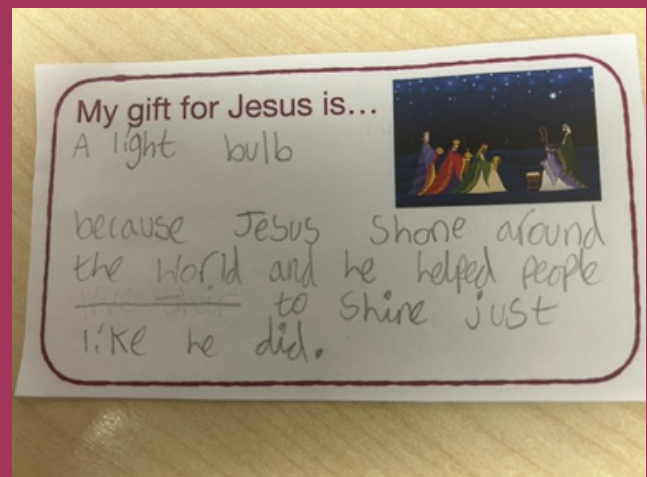 My gift for Jesus is...
A light bulb
because Jesus shone around
the world and he helped people
to shine just
like he did.